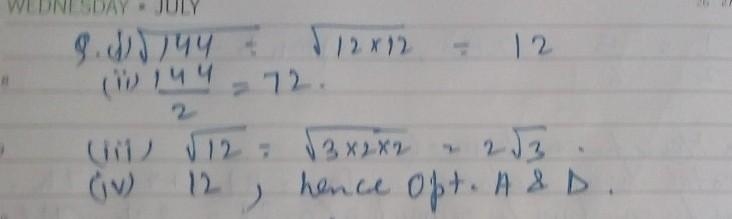 WEDNESDAY • JULY
9. (i) √144 = √12×12 = 12
(ii) 144/2 = 72.
(iii) √12 = √3×2×2 = 2√3.
(iv) 12, hence Opt. A & D.